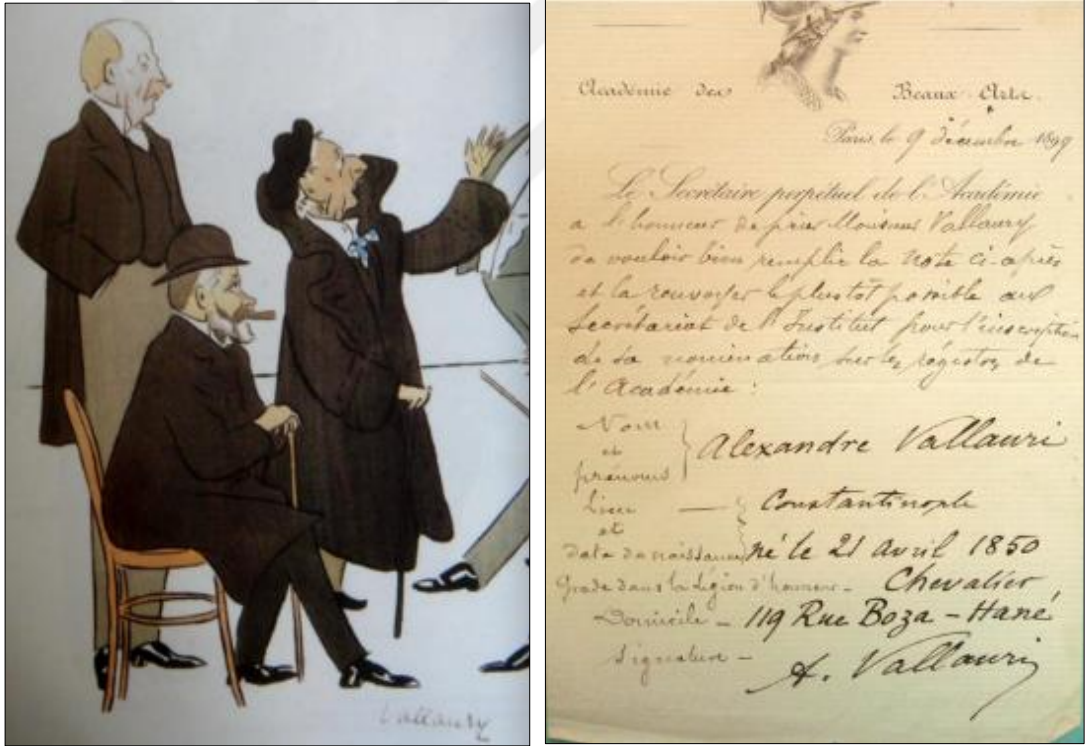 Vallaury
Académie des Beaux-Arts.
Paris, le 9 décembre 1899
Le Secrétaire perpétuel de l'Académie
a l'honneur de prier Monsieur Vallaury
de vouloir bien remplir la note ci-après
et la renvoyer le plus tôt possible au
Secrétariat de l'Institut pour l'inscription
de sa nomination sur les registres de
l'Académie :
Nom
et
prénoms
Alexandre Vallauri
Lieu
et
date de naissance
Constantinople
né le 21 avril 1850
Grade dans la Légion d'honneur - Chevalier
Domicile - 119 Rue Boza - Hané
Signature - A. Vallauri